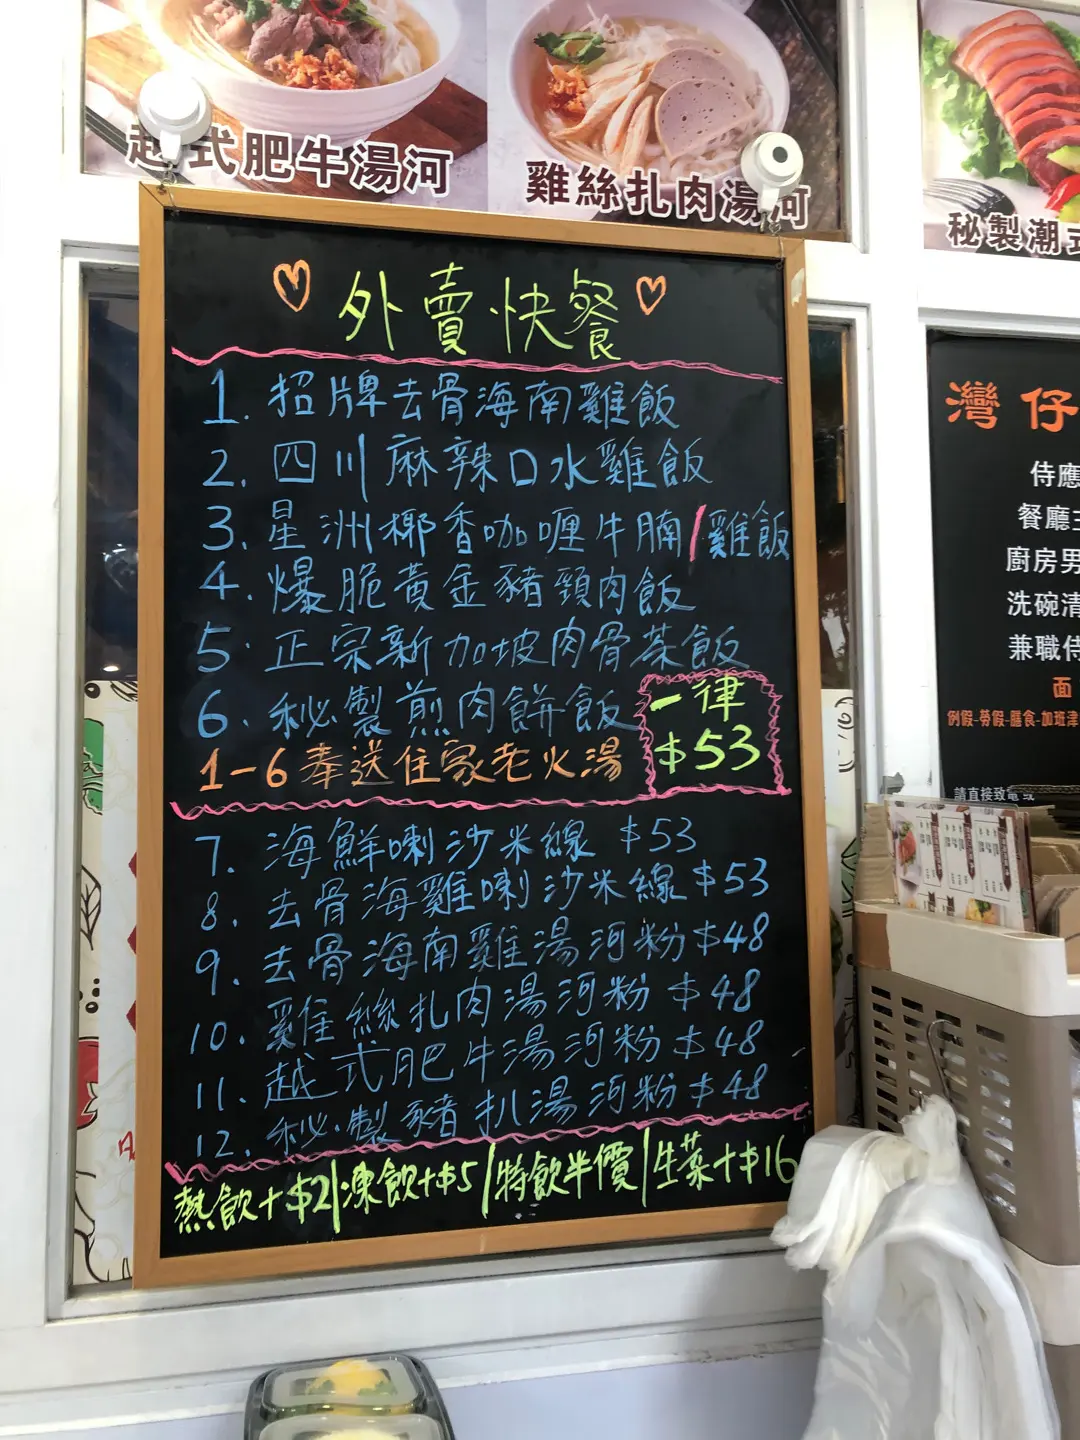 越式肥牛湯河
雞絲扎肉湯河
秘製潮式
外賣快餐
1. 招牌去骨海南雞飯
2. 四川麻辣口水雞飯
3. 星洲椰香咖喱牛腩/雞飯
4. 爆脆黃金豬頸肉飯
5. 正宗新加坡肉骨茶飯
6. 秘製煎肉餅飯
一律
$53
1-6奉送住家老火湯
7. 海鮮喇沙米線 $53
8. 去骨海雞喇沙米線 $53
9. 去骨海南雞湯河粉 $48
10. 雞絲扎肉湯河粉 $48
11. 越式肥牛湯河粉 $48
12. 秘製豬扒湯河粉 $48
熱飲+$2/凍飲+$5/特飲半價/生菜+$16
灣仔
侍應
餐廳主
廚房男
洗碗清
兼職侍
面
例假-勞假-膳食-加班津
請直接致電或